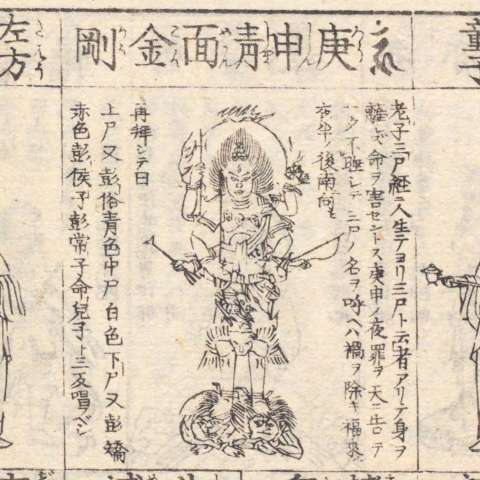 童子
庚申青面金剛
かう しん しやう めん こん がう
老子三尸経ニ人生テヨリ三尸ト云者アリテ身ヲ
離レズ命ヲ害セントス庚申ノ夜罪ヲ天ニ告テ
不睡シテ三尸ノ名ヲ呼ヘハ禍ヲ除キ福来
夜半ノ後南向
再拝シテ曰
上尸又彭俗青色中尸白色下尸又彭矯
赤色彭侯子彭常子命児子ト三反唱フベシ
左方